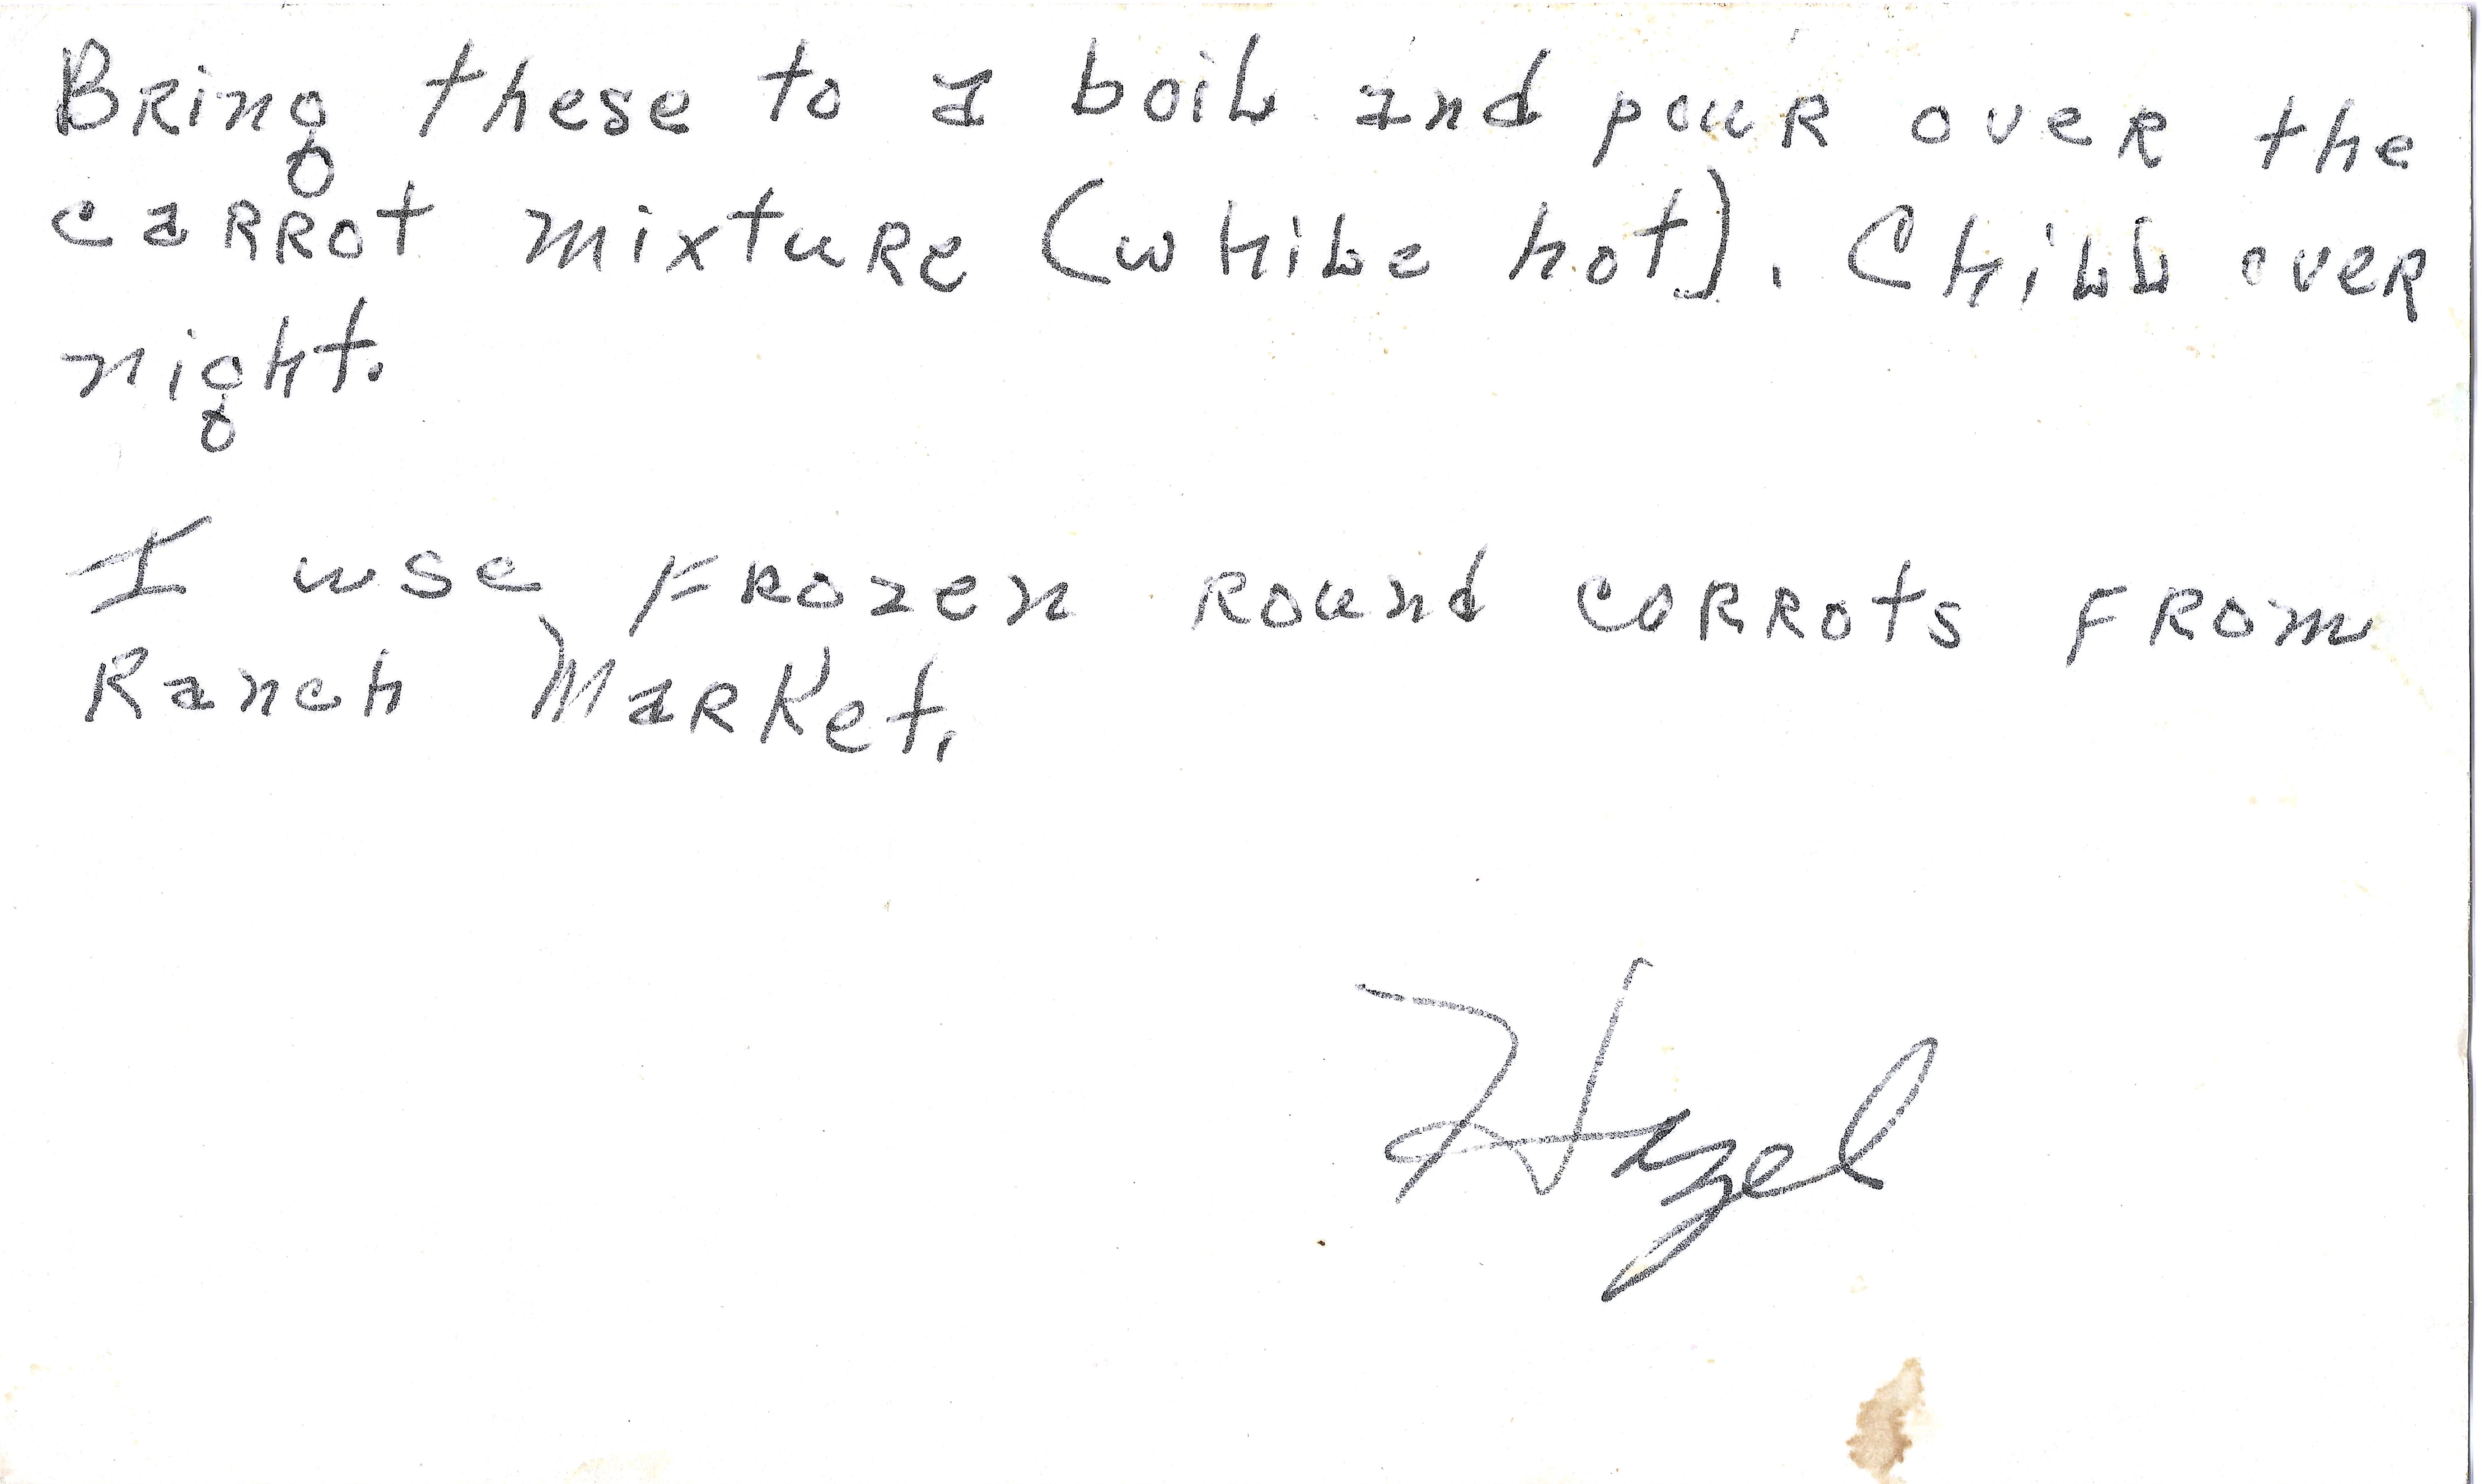 Bring these to a boil and pour over the
carrot mixture (while hot). Chill over
night.
I use frozen round corrots from
Ranch Market.
Hazel